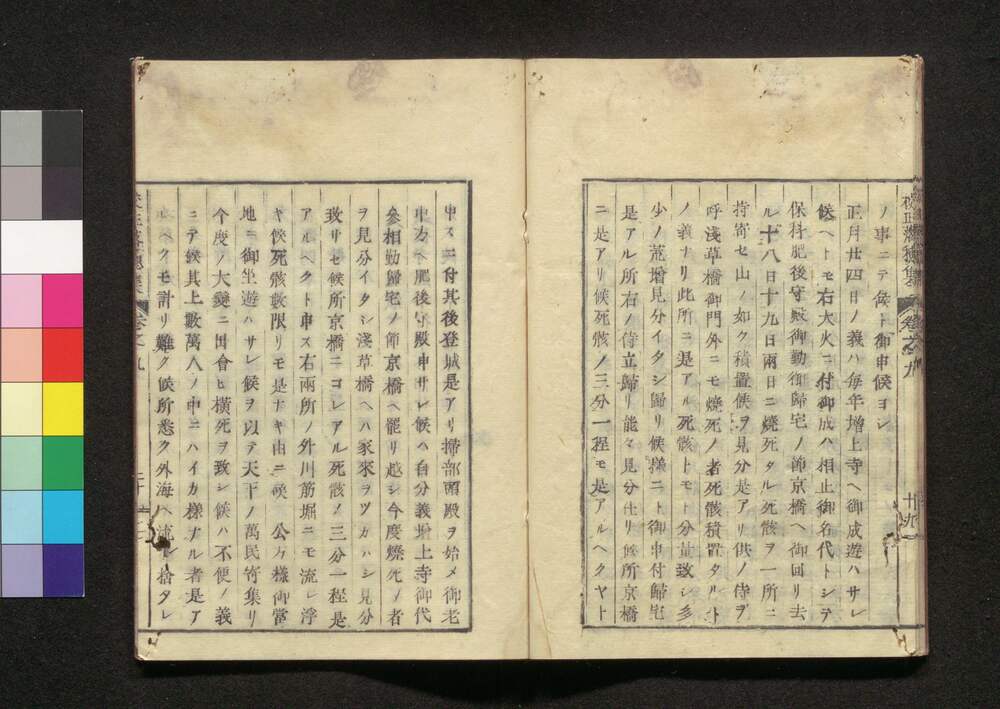 ノ事ニテ候ト御申候ヨシ
正月廿四日ノ義ハ毎年増上寺ヘ御成遊ハサレ
候ヘトモ右大火ニ付御成ハ相止御名代トシテ
保科肥後守殿御勤御歸宅ノ節京橋ヘ御回リ去
ル十八日十九日兩日ニ燒死タル死骸ヲ一所ニ
持寄セ山ノ如ク積置候ヲ見分是アリ供ノ侍ヲ
呼淺草橋御門外ニモ燒死ノ者死骸積置タルト
ノ義ナリ此所ニ是アル死骸トモト分量致シ多
少ノ荒增見分イタシ歸リ候樣ニト御申付歸宅
是アル所右ノ侍立歸リ能々見分仕リ候所京橋
ニ是アリ候死骸ノ三分一程モ是アルヘクヤト
卷之九
十九
申スニ付其後登城是アリ掃部頭殿ヲ始メ御老
中方ヘ肥後守殿申サレ候ハ自分義增上寺御代
參相勤歸宅ノ節京橋ヘ罷リ越シ今度燒死ノ者
ヲ見分イタシ淺草橋ヘハ家來ヲツカハシ見分
致サセ候所京橋ニコレアル死骸ノ三分一程是
アルヘクト申ス右兩所ノ外川筋堀ニモ流レ浮
キ候死骸數限リモ是ナキ由ニ候 公方樣御當
地ニ御坐遊ハサレ候ヲ以テ天下ノ萬民寄集リ
今度ノ大變ニ出會ヒ橫死ヲ致シ候ハ不便ノ義
ニテ候其上數萬人ノ中ニハイカ樣ナル者是ア
ルヘクモ計リ難ク候所悉ク外海ヘ流シ捨タレ
卷之九